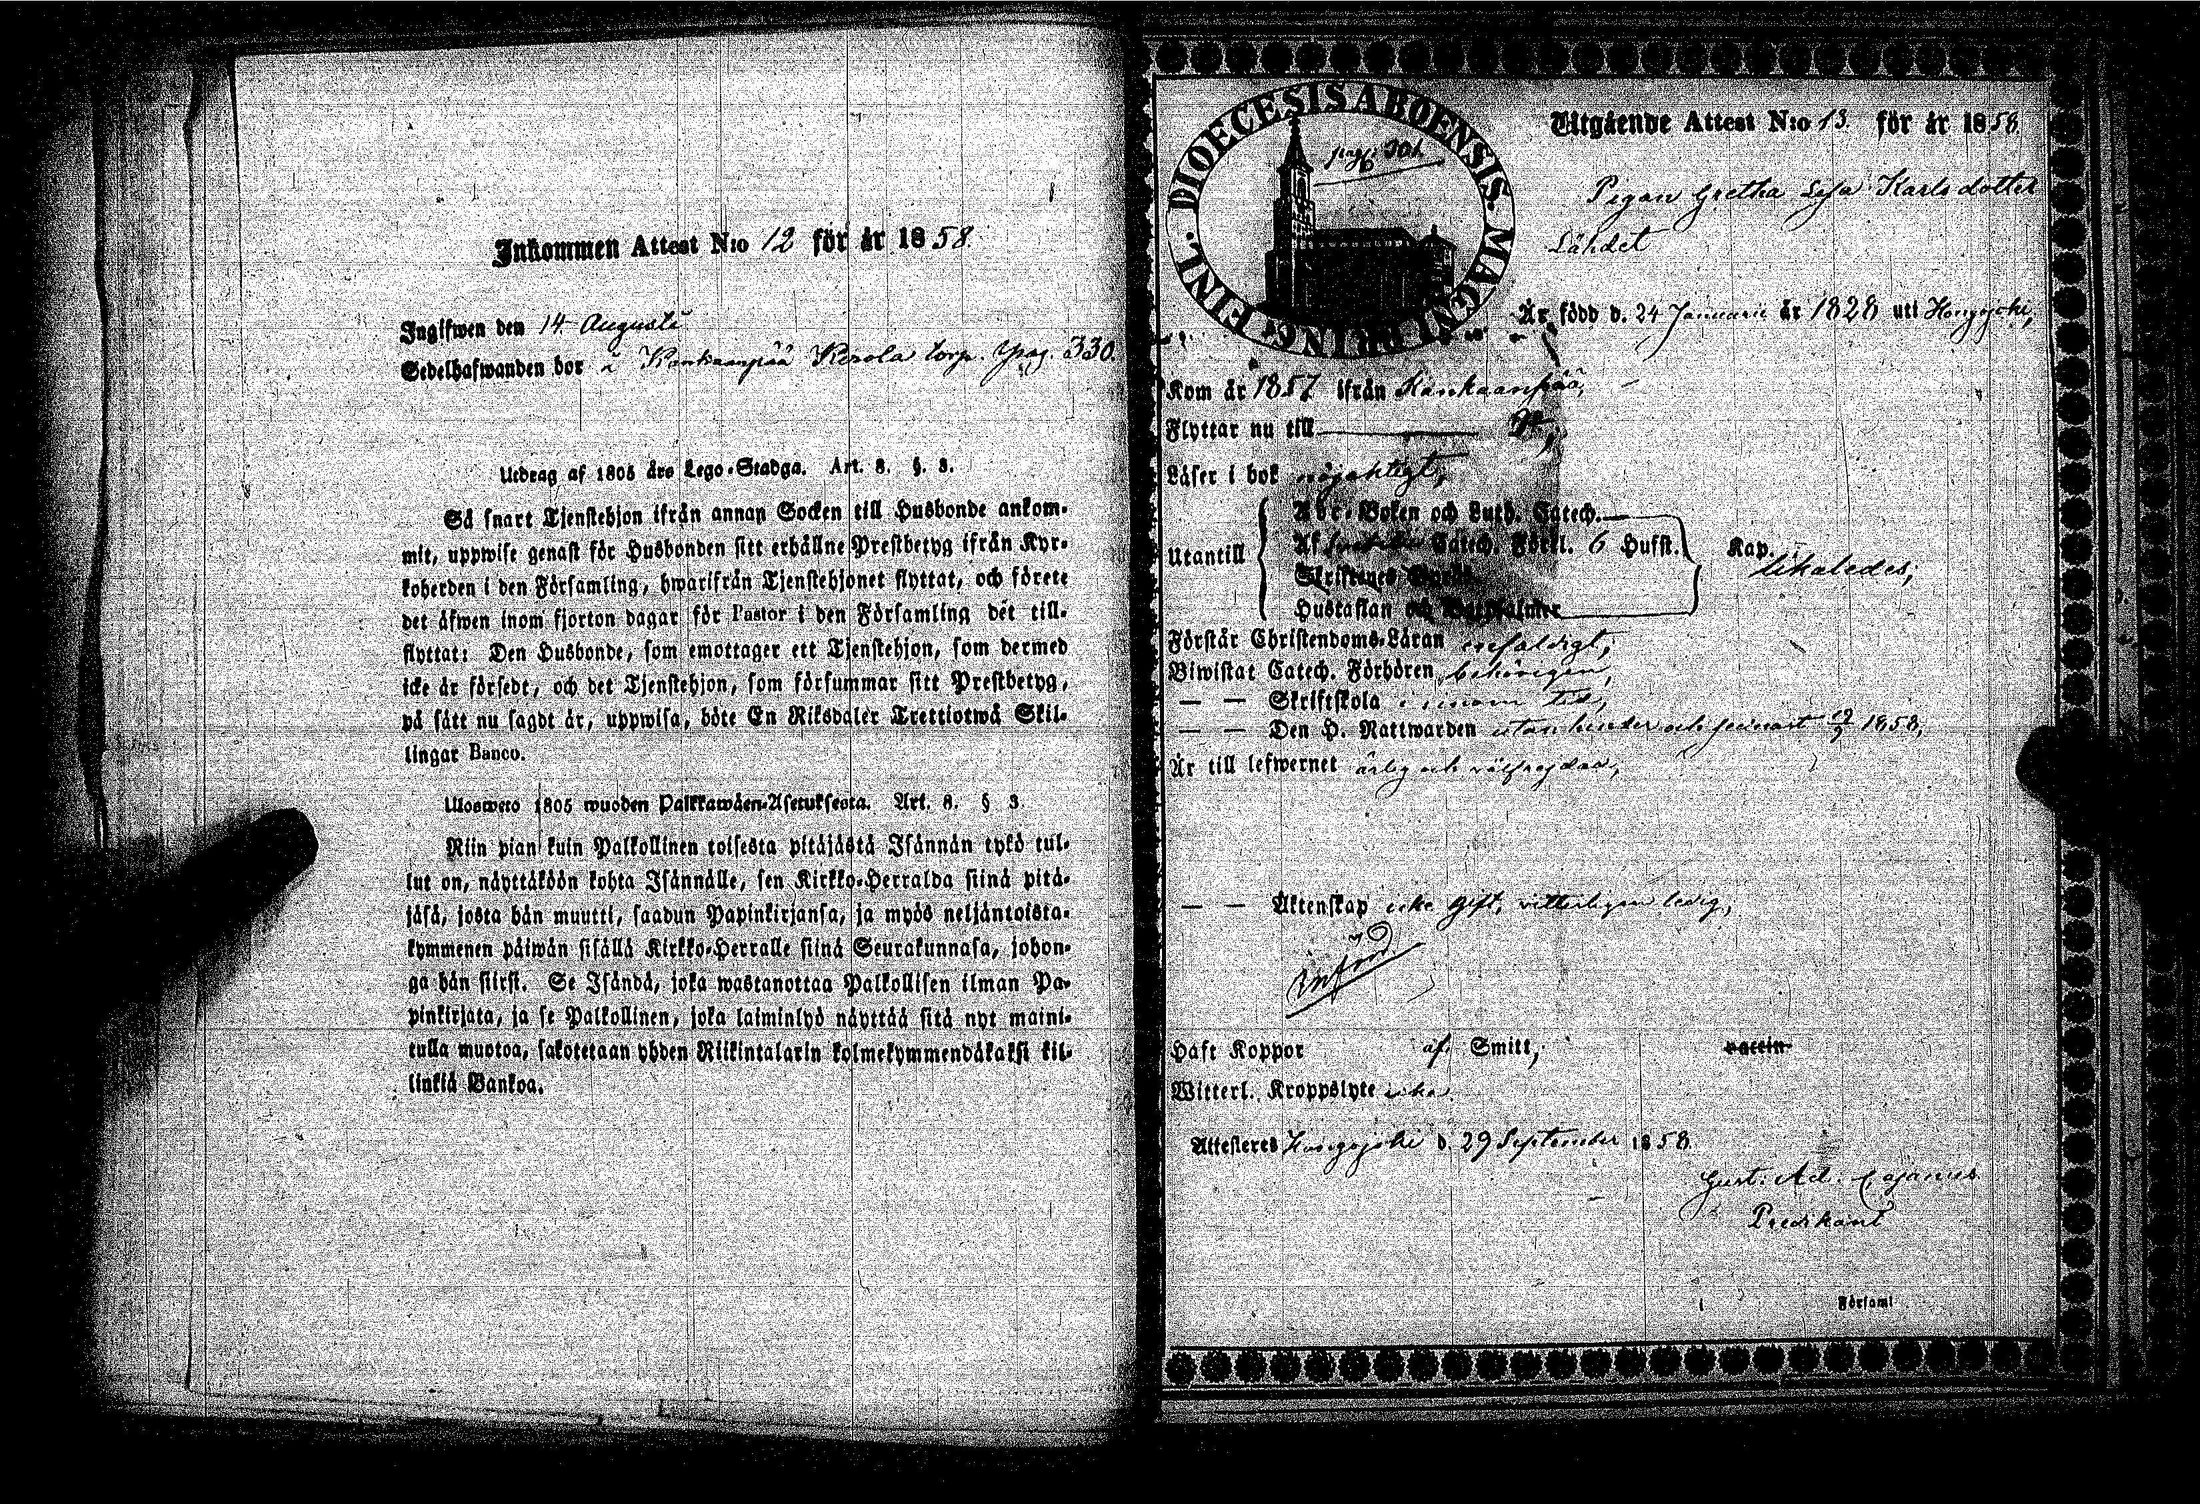 Inkommen Attest N:o 12 för år 1858.
Ingifwen den 14 Augusti
Sedelhafwanden bor å Kankaanpää Kerola torp. pag. 330.
Utdrag af 1805 års Lego-Stadga. Art. 8. §. 3.
Så snart Tjenstehjon ifrån annan Socken till Husbonde ankom-
mit, uppwise genast för Husbonden sitt erhållne Prestbetyg ifrån Kyr-
koherden i den Församling, hwarifrån Tjenstehjonet flyttat, och förete
det äfwen inom fjorton dagar för Pastor i den Församling det till-
flyttat: Den Husbonde, som emottager ett Tjenstehjon, som dermed
icke är försedt, och det Tjenstehjon, som försummar sitt Prestbetyg,
på sätt nu sagdt är, uppwisa, böte En Riksdaler Trettiotwå Skil-
lingar Banco.
Uloswето 1805 wuoden Palkkawäen-Asetuksesta. Art. 8. § 3.
Niin pian kuin Palkollinen toisesta pitäjästä Isännän tykö tul-
lut on, näyttäköön kohta Isännälle, sen Kirkko-Herralda siinä pitä-
jäsä, josta hän muutti, saadun Papinkirjansa, ja myös neljäntoista-
kymmenen päiwän sisällä Kirkko-Herralle siinä Seurakunnasa, johon-
ga hän siirsi. Se Isändä, joka wastanottaa Palkollisen ilman Pa-
pinkirjata, ja se Palkollinen, joka laiminlyö näyttää sitä nyt maini-
tulla muotoa, sakotetaan yhden Riikintalarin kolmekymmendäkaksi kil-
linkiä Bankoa.
DIOECESIS ABOENSIS. MAGNI PRINC. FINL.
pag: 301
Utgående Attest N:o 13. för år 1858.
Pigan Gretha Lisa Karlsdotter
Lähdet
Är född d. 24 Januarii år 1828 uti Hongojoki,
Kom år 1857 ifrån Kankaanpää,
Flyttar nu till
Läser i bok nöjaktigt,
Utantill
Abc-Boken och Luth. Catech.
Af Catech. Förkl. 6 Hufst. Kap.
likaledes,
Skriftenes Språk
Hustaflan och Botpsalmer
Förstår Christendoms-Läran enfaldigt,
Biwistat Catech. Förhören behörigen,
— — Skriftskola i sinom tid,
— — Den H. Nattwarden utan hinder och senast 1858,
Är till lefwernet ärlig och välfrejdad,
— — Äktenskap icke gift, vitterligen ledig,
Införd
Haft Koppor af Smitt, vaccin
Witterl. Kroppslyte icke
Attesteres Hongojoki d. 29 September 1858.
Gust: Ad. Cajanus
Predikant
Församl